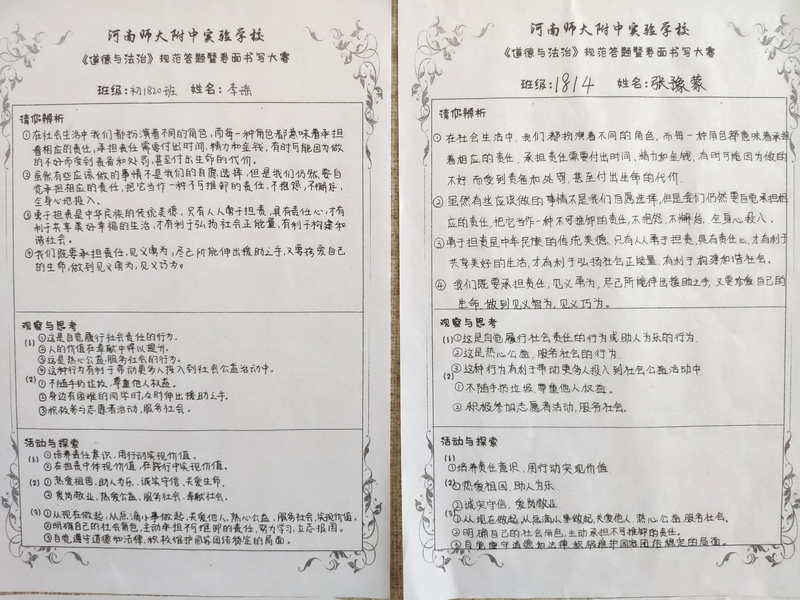 河南师大附中实验学校
《道德与法治》规范答题暨卷面书写大赛
班级:初1820班 姓名:李瑶
请你辨析
①在社会生活中我们都扮演着不同的角色,而每一种角色都意味着承担
着相应的责任,承担责任需要付出时间、精力和金钱,有时可能因为做
的不好而受到责备和处罚,甚至付出生命的代价。
②虽然有些应该做的事情不是我们的自愿选择,但是我们仍然要自
觉承担相应的责任,把它当作一种不可推卸的责任,不抱怨,不懈怠,
全身心地投入。
③勇于担责是中华民族的传统美德,只有人人勇于担责,具有责任心,才有
利于共享美好幸福的生活,才有利于弘扬社会正能量,有利于构建和
谐社会。
④我们既要承担责任,见义勇为,尽己所能伸出援助之手,又要珍爱自己
的生命,做到见义勇为,见义巧为。
观察与思考
(1)①这是自觉履行社会责任的行为.
②人的价值在奉献中得以提升.
③这是热心公益,服务社会的行为。
④这种行为有利于带动更多人投入到社会公益活动中.
(2)①不随手扔垃圾,尊重他人权益。
②身边有困难的同学时,及时伸出援助之手。
③积极参与志愿者活动,服务社会。
活动与探索
(1)①培养责任意识,用行动实现价值。
②在担责中体现价值,在践行中实现价值。
(2)①热爱祖国,助人为乐,诚实守信,关爱生命。
②爱岗敬业,热爱公益,服务社会,奉献社会。
(3)①从现在做起,从点滴小事做起,关爱他人,热心公益,服务社会,实现价值。
②明确自己的社会角色,主动承担不可推卸的责任,努力学习,立志报国。
③自觉遵守道德和法律,积极维护国家团结稳定的局面。
河南师大附中实验学校
《道德与法治》规范答题暨卷面书写大赛
班级:1814 姓名:张豫蒙
请你辨析
①在社会生活中,我们都扮演着不同的角色,而每一种角色都意味着承担
着相应的责任,承担责任需要付出时间、精力和金钱,有时可能因为做的
不好而受到责备和处罚,甚至付出生命的代价.
②虽然有些应该做的事情不是我们自愿选择,但是我们仍然要自觉承担相
应的责任,把它当作一种不可推卸的责任,不抱怨,不懈怠,全身心投入。
③勇于担责是中华民族的传统美德,只有人人勇于担责,具有责任心,才有利于
共享美好的生活,才有利于弘扬社会正能量,有利于构建和谐社会。
④我们既要承担责任,见义勇为,尽己所能伸出援助之手,又要珍爱自己的
生命,做到见义智为,见义巧为。
观察与思考
(1)①这是自觉履行社会责任的行为或助人为乐的行为.
②这是热心公益,服务社会的行为.
③这种行为有利于带动更多人投入到社会公益活动中
(2)①不随手扔垃圾,尊重他人权益。
②积极参加志愿者活动,服务社会。
活动与探索
(1)
①培养责任意识,用行动实现价值
(2)①热爱祖国,助人为乐
②诚实守信,爱岗敬业
(3)①从现在做起,从点滴小事做起,关爱他人,热心公益,服务社会。
②明确自己的社会角色,主动承担不可推卸的责任。
③自觉遵守道德和法律,积极维护国家团结稳定的局面。